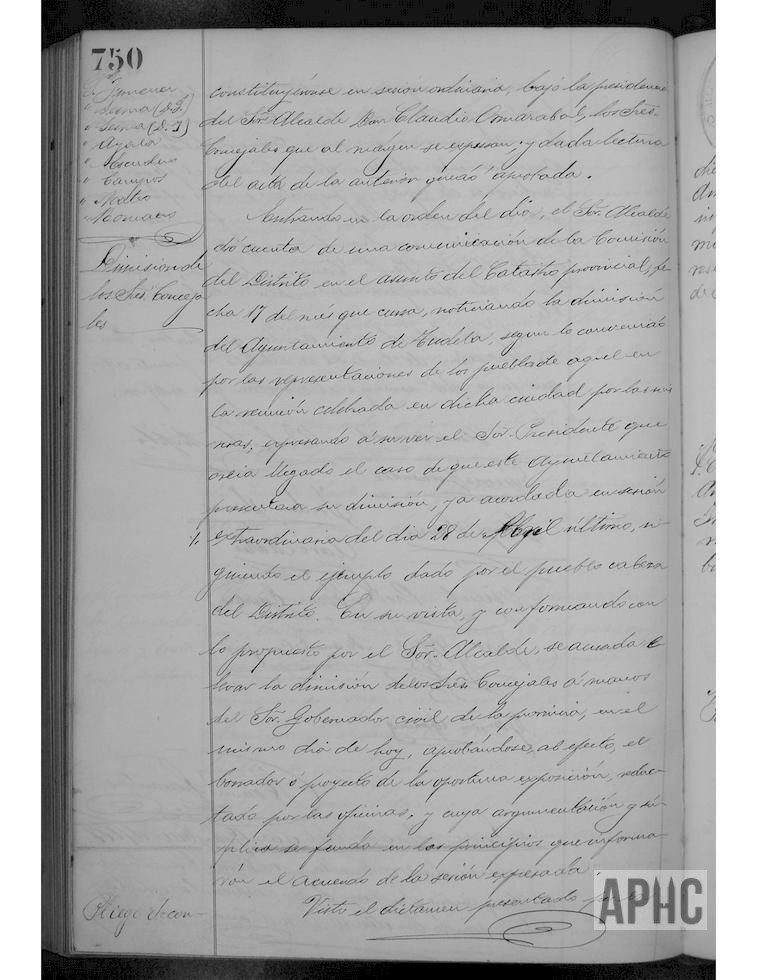 750
" Jimenez
" Luna (D. F.)
" Luna (D. J)
" Ayala
" Escudero
" Campos
" Moltó
" Romano
Dimision de
los Sres. Conceja
les
Pliego de con-
constituyéronse en sesión ordinaria, bajo la presidencia
del Sor. Alcalde Don Claudio Omarabal, los Sres.
Concejales que al márgen se expresan, y dada lectura
del acta de la anterior quedó aprobada.
Entrando en la orden del dia, el Sor. Alcalde
dió cuenta de una comunicación de la Comisión
del Distrito en el asunto del Catastro provincial, fe-
cha 17 del mes que cursa, noticiando la dimisión
del Ayuntamiento de Tudela, segun lo convenido
por las representaciones de los pueblos de aquel en
la reunión celebrada en dicha ciudad por las mis
mas, expresando á su vez el Sor. Presidente que
creia llegado el caso de que este Ayuntamiento
presentara su dimisión, ya acordada en sesión
extraordinaria del dia 28 de Abril último, si-
guiendo el ejemplo dado por el pueblo cabeza
del Distrito. En su vista, y conformando con
lo propuesto por el Sor. Alcalde, se acuerda e
levar la dimisión de los Sres. Concejales á manos
del Sor. Gobernador civil de la provincia, en el
mismo dia de hoy, aprobándose, al efecto, el
borrador ó proyecto de la oportuna exposición, redac-
tado por las oficinas, y cuya argumentación y sú-
plica se funda en los principios que informa-
rón el acuerdo de la sesión expresada.
Visto el dictámen presentado por la
APHC